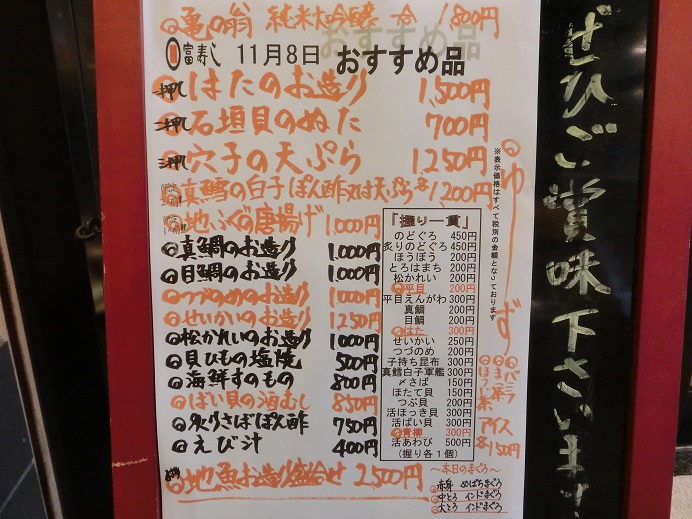 亀の翁 純米大吟醸 一合 1,800円
富寿し 11月8日 おすすめ品
押し はたのお造り 1,500円
押し 石垣貝のぬた 700円
押し 穴子の天ぷら 1,250円
真鱈の白子 ぽん酢又は天ぷら 各1,200円
地ふぐの唐揚げ 1,000円
真鯛のお造り 1,000円
目鯛のお造り 1,000円
つづのめのお造り 1,000円
せいかいのお造り 1,250円
松かれいのお造り 1,000円
貝ひもの塩焼 500円
海鮮すのもの 800円
ばい貝の酒むし 850円
炙りさばぽん酢 750円
えび汁 400円
地魚お造り盛合せ 2,500円
「握り一貫」
のどぐろ 450円
炙りのどぐろ 450円
ほうぼう 200円
とろはまち 200円
松かれい 200円
平目 200円
平目えんがわ 300円
真鯛 200円
目鯛 200円
はた 300円
せいかい 250円
つづのめ 200円
子持ち昆布 300円
真鱈白子軍艦 300円
〆さば 150円
ほたて貝 150円
つぶ貝 200円
活ほっき貝 300円
活ばい貝 300円
青柳 300円
活あわび 500円
(握り各1個)
※表示価格はすべて税別の金額となっております
ゆず
バニラ
まっ茶
ほうじ茶
アイス
各150円
～本日のまぐろ～
赤身 めばちまぐろ
中とろ インドまぐろ
大とろ インドまぐろ
ぜひご賞味下さいませ